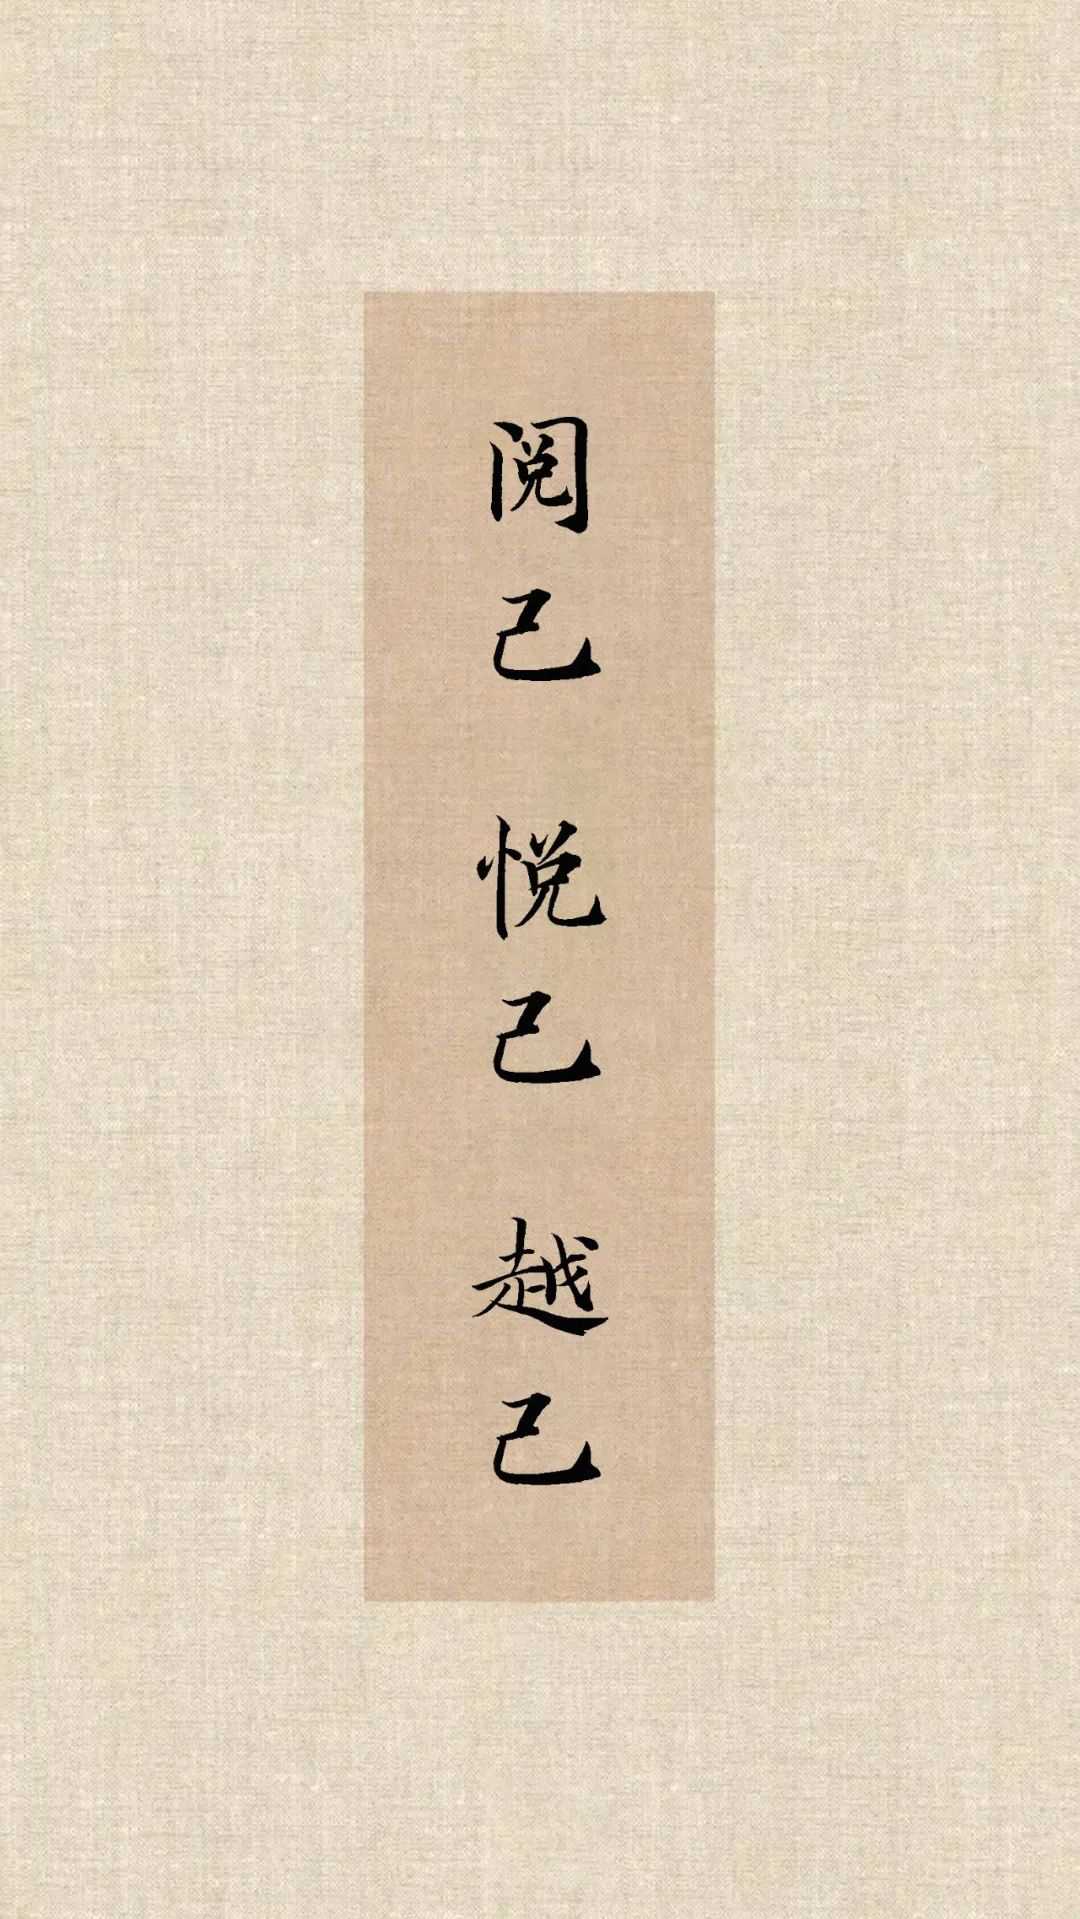 阅己 悦己 越己